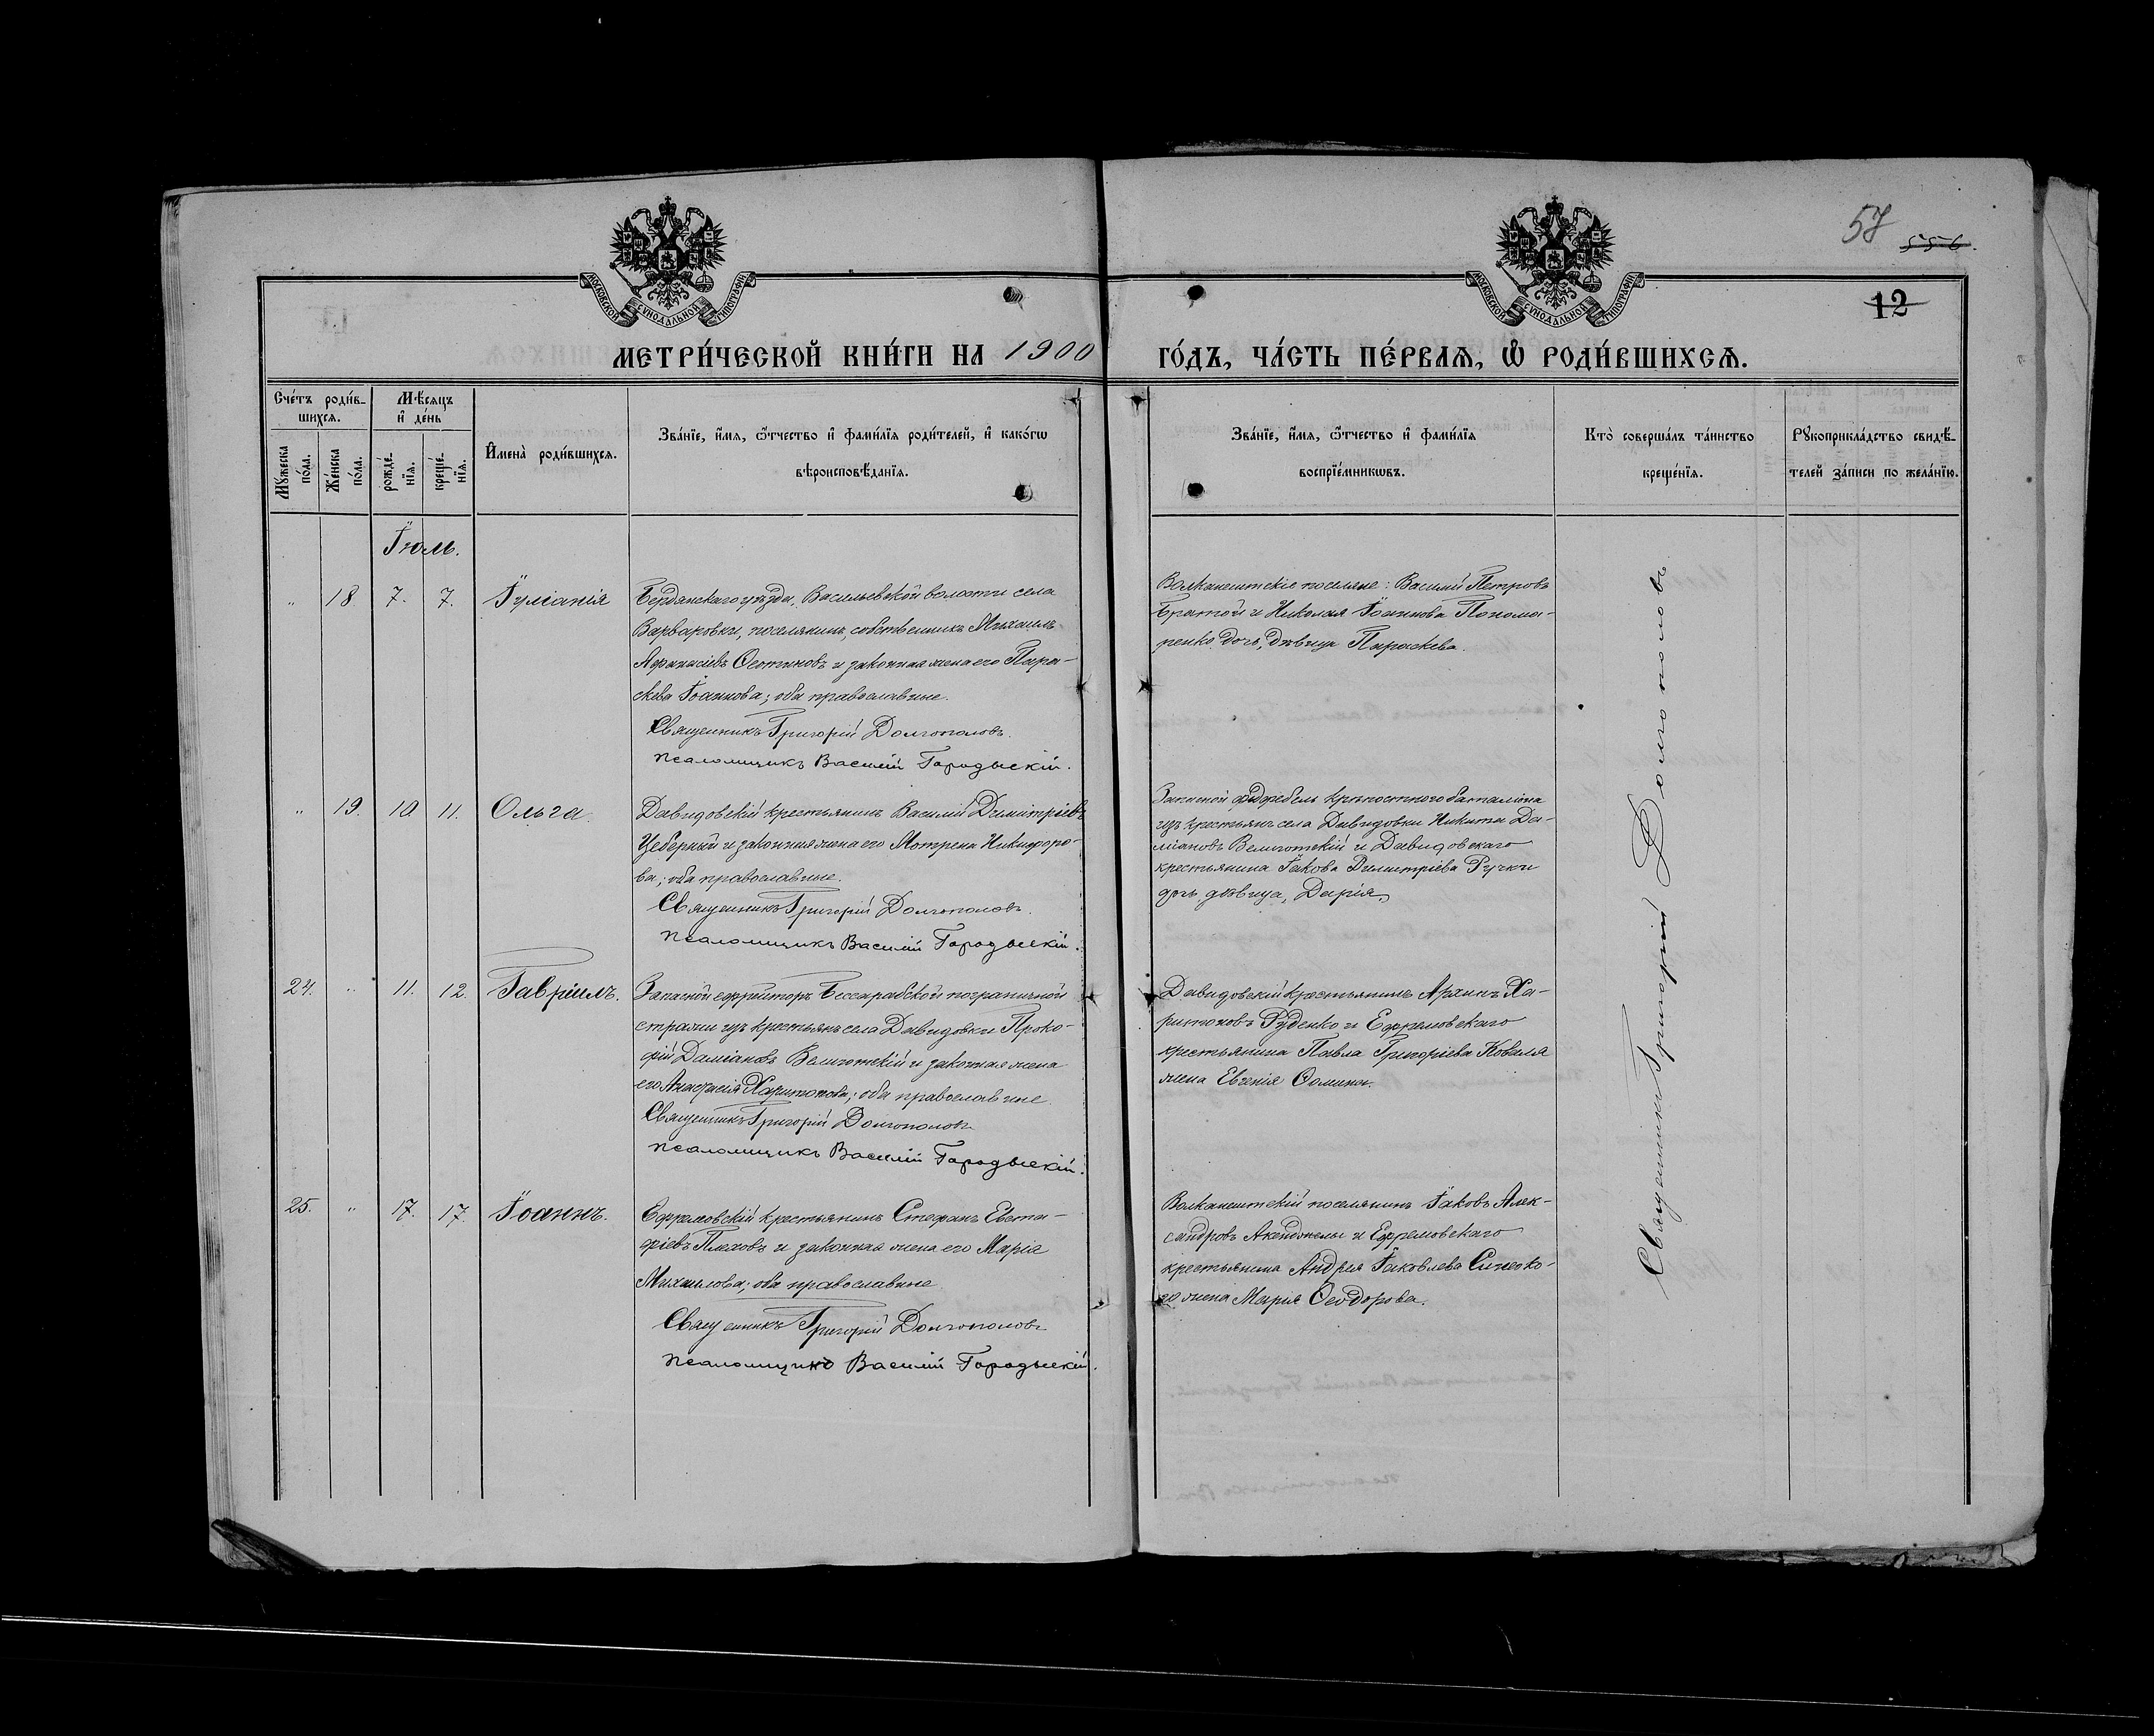 57
556.
12
МОСКОВСКОЙ СѴНОДАЛЬНОЙ ТИПОГРАФІИ
МОСКОВСКОЙ СѴНОДАЛЬНОЙ ТИПОГРАФІИ
МЕТРИ́ЧЕСКОЙ КНИ́ГИ НА 1900
ГО́ДЪ, ЧА́СТЬ ПЕ́РВАѦ, Ѽ РОДИ́ВШИХСѦ.
Сче́тъ роди́в-
шихсѧ.
Мѣ́сѧцъ
и҆ де́нь
Мꙋ́жеска
по́ла.
Же́нска
по́ла.
рожде́-
нїѧ.
креще́-
нїѧ.
И҆мена̀ роди́вшихсѧ.
Зва́нїе, и҆́мѧ, ѻ҆́тчество и҆ фами́лїѧ роди́телей, и҆ како́гѡ
вѣроисповѣ́данїѧ.
Зва́нїе, и҆́мѧ, ѻ҆́тчество и҆ фами́лїѧ
воспрїе́мникѡвъ.
Кто̀ соверша́лъ та́инство
креще́нїѧ.
Рꙋкоприкла́дство свидѣ́-
телей за́писи по жела́нїю.
Іюль.
" 18 7. 7. Іуліанія
Бердянскаго уѣзда, Васильевской волости села
Варваровки, поселянинъ собственникъ Михаилъ
Афанасіевъ Ѳеоктистовъ и законная жена его Пара-
скева Іоаннова; оба православные.
Священникъ Григорій Долгополовъ.
Псаломщикъ Василій Городыскій.
Волканештскіе поселяне: Василій Петровъ
Братой и Николая Іоаннова Понома-
ренко дочь, дѣвица Параскева.
" 19. 10 11. Ольга.
Давидовскій крестьянинъ Василій Димитріевъ
Цеберный и законная жена его Мотрена Никифоро-
ва; оба православные.
Священникъ Григорій Долгополовъ.
Псаломщикъ Василій Городыскій.
Запасной фельдфебель крѣпостного баталіона
изъ крестьянъ села Давидовки Никита Да-
міановъ Велиготскій и Давидовскаго
крестьянина Іакова Димитріева Ручки
дочь дѣвица, Дарія.
24. " 11. 12. Гавріилъ.
Запасной ефрейторъ Бессарабской пограничной
стражи изъ крестьянъ села Давидовки Проко-
фій Даміановъ Велиготскій и законная жена
его Анастасія Харитонова; оба православные.
Священникъ Григорій Долгополовъ
Псаломщикъ Василій Городыскій.
Давидовскій крестьянинъ Ха-
ритоновъ Руденко и Ефремовскаго
крестьянина Павла Григоріева Коваля
жена Евгенія Ѳомина.
25. " 17. 17. Іоаннъ.
Ефремовскій крестьянинъ Стефанъ Евста-
фіевъ Плаховъ и законная жена его Марія
Михаилова; оба православные.
Священникъ Григорій Долгополовъ
Псаломщикъ Василій Городыскій.
Волканештскій поселянинъ Іаковъ Алек-
сандровъ и Ефремовскаго
крестьянина Андрея Іаковлева Синеоко-
го жена Марія Ѳеодорова.
Священникъ Григорій Долгополовъ